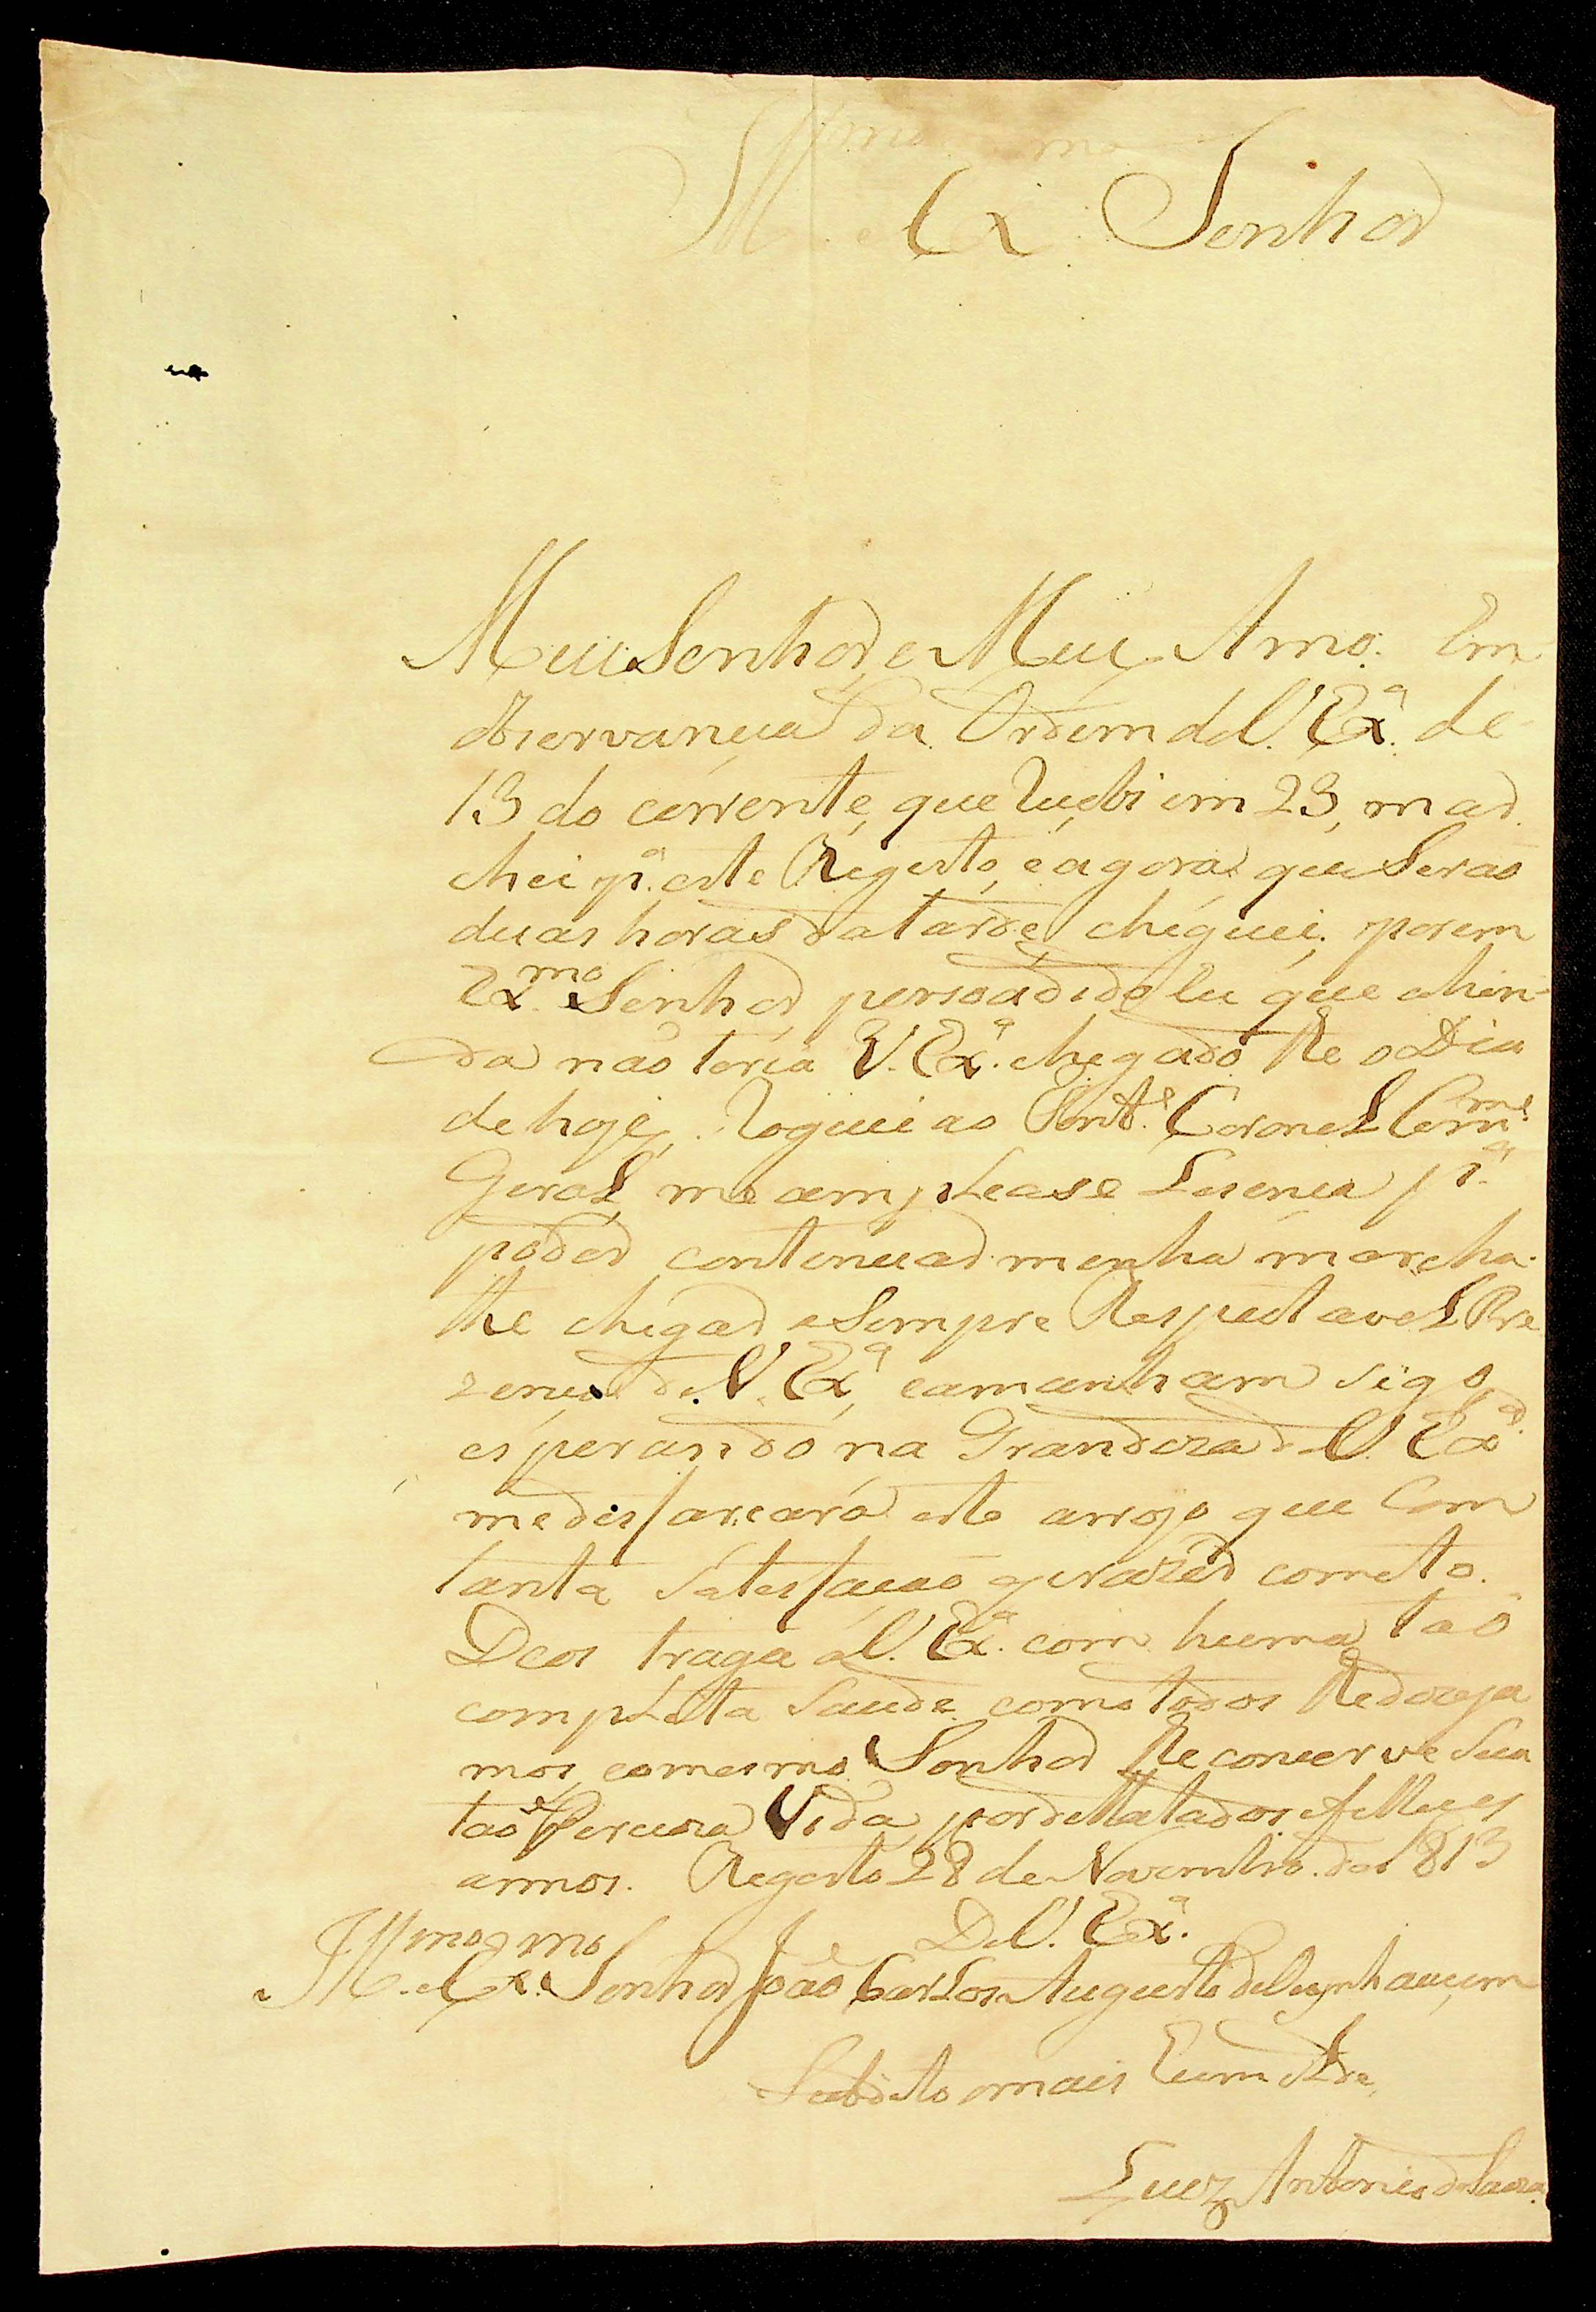 Illmo. e Exmo. Senhor
Meu Senhor, e Meu Amo. Em
observançia da Ordem de V. Exa. de
13 do corrente, que Reçebi em 23, mar
chei pa. este Regesto, e agora que Seraõ
duas horas da tarde, chéguei. porem
Exmo. Senhor, persoadido Eu que ahin-
da naõ teria V. Exa. chegado the o Dia
de hoje, Roguei ao Tente. Coronel Comme.
Geral, me amplease Lesença pa.
poder contenuar menha marcha
the chegar a Sempre Respeitavel Pre
zença de V. Exa., e amanham sigo,
esperando na Grandeza de V. Exa.
me desfarcará este arrojo que Com
tanta Satesfaçaõ e prazer cometo.
Deos traga a V. Exa. com huma taõ
completa Saude, como todos lhe dezeja
mos, e o mesmo Senhor lhe concerve Sua
taõ Perciosa Vida, por delatados e felleçes
annos. Regesto 28 de Novembro de 1813
De V. Exa.
Illmo. e Exmo. Senhor Joaõ Carlos Augusto de Oeynhauçem
Subdito mais Eumelde,
Luez Antonio de Souza